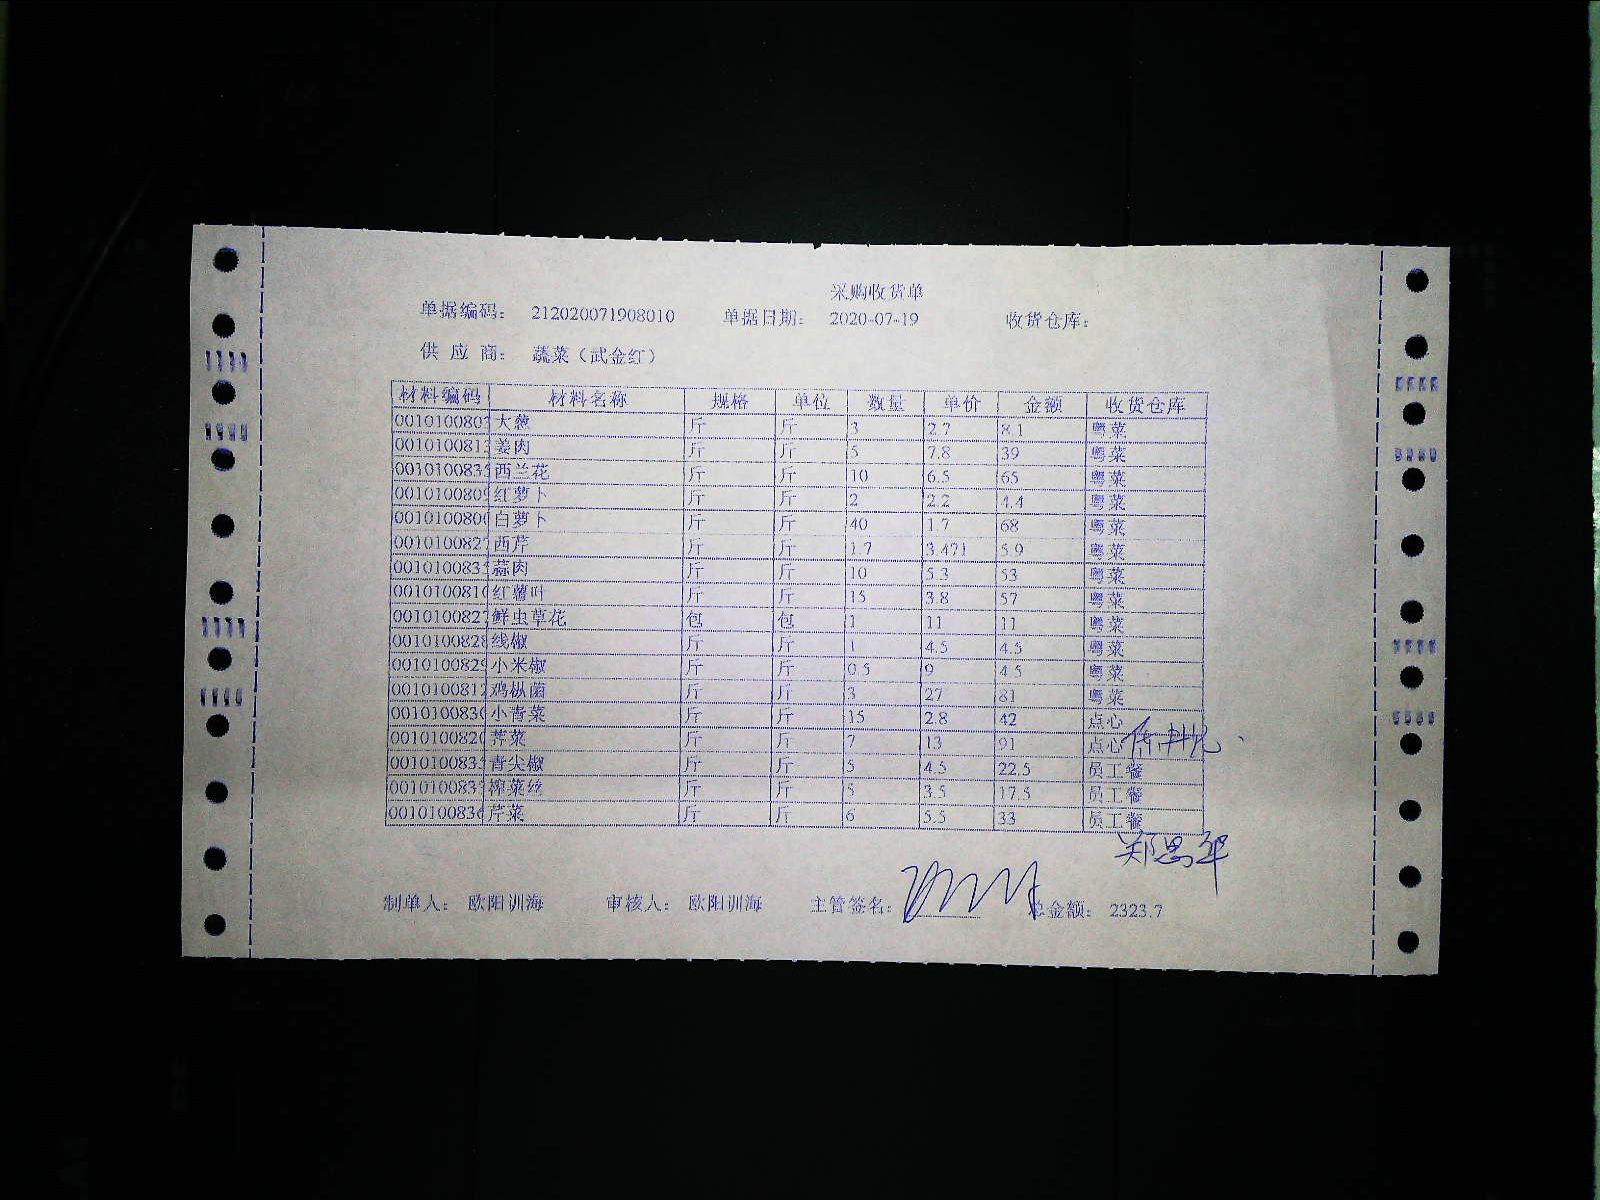 采购收货单
单据编码： 212020071908010 单据日期： 2020-07-19 收货仓库：
供 应 商： 蔬菜（武金红）
材料编码 材料名称 规格 单位 数量 单价 金额 收货仓库
0010100803 大葱 斤 斤 3 2.7 8.1 粤菜
0010100813 姜肉 斤 斤 5 7.8 39 粤菜
0010100835 西兰花 斤 斤 10 6.5 65 粤菜
0010100809 红萝卜 斤 斤 2 2.2 4.4 粤菜
0010100800 白萝卜 斤 斤 40 1.7 68 粤菜
0010100827 西芹 斤 斤 1.7 3.471 5.9 粤菜
0010100835 蒜肉 斤 斤 10 5.3 53 粤菜
0010100810 红薯叶 斤 斤 15 3.8 57 粤菜
0010100827 鲜虫草花 包 包 1 11 11 粤菜
0010100828 线椒 斤 斤 1 4.5 4.5 粤菜
0010100829 小米椒 斤 斤 0.5 9 4.5 粤菜
0010100817 鸡枞菌 斤 斤 3 27 81 粤菜
0010100830 小青菜 斤 斤 15 2.8 42 点心
0010100820 荠菜 斤 斤 7 13 91 点心
0010100835 青尖椒 斤 斤 5 4.5 22.5 员工餐
0010100837 榨菜丝 斤 斤 5 3.5 17.5 员工餐
0010100836 芹菜 斤 斤 6 5.5 33 员工餐
郑思平
制单人： 欧阳训海 审核人： 欧阳训海 主管签名： 总金额： 2323.7